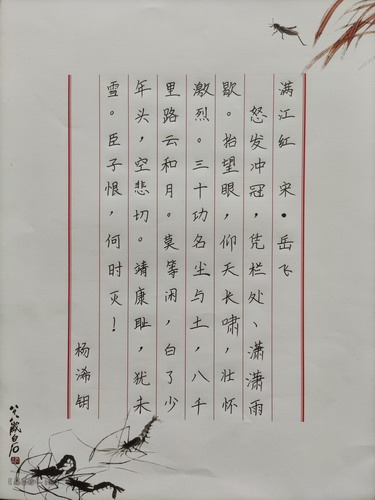 满江红 宋·岳飞
怒发冲冠，凭栏处、潇潇雨
歇。抬望眼，仰天长啸，壮怀
激烈。三十功名尘与土，八千
里路云和月。莫等闲，白了少
年头，空悲切。靖康耻，犹未
雪。臣子恨，何时灭！
杨浠钥
歲白石